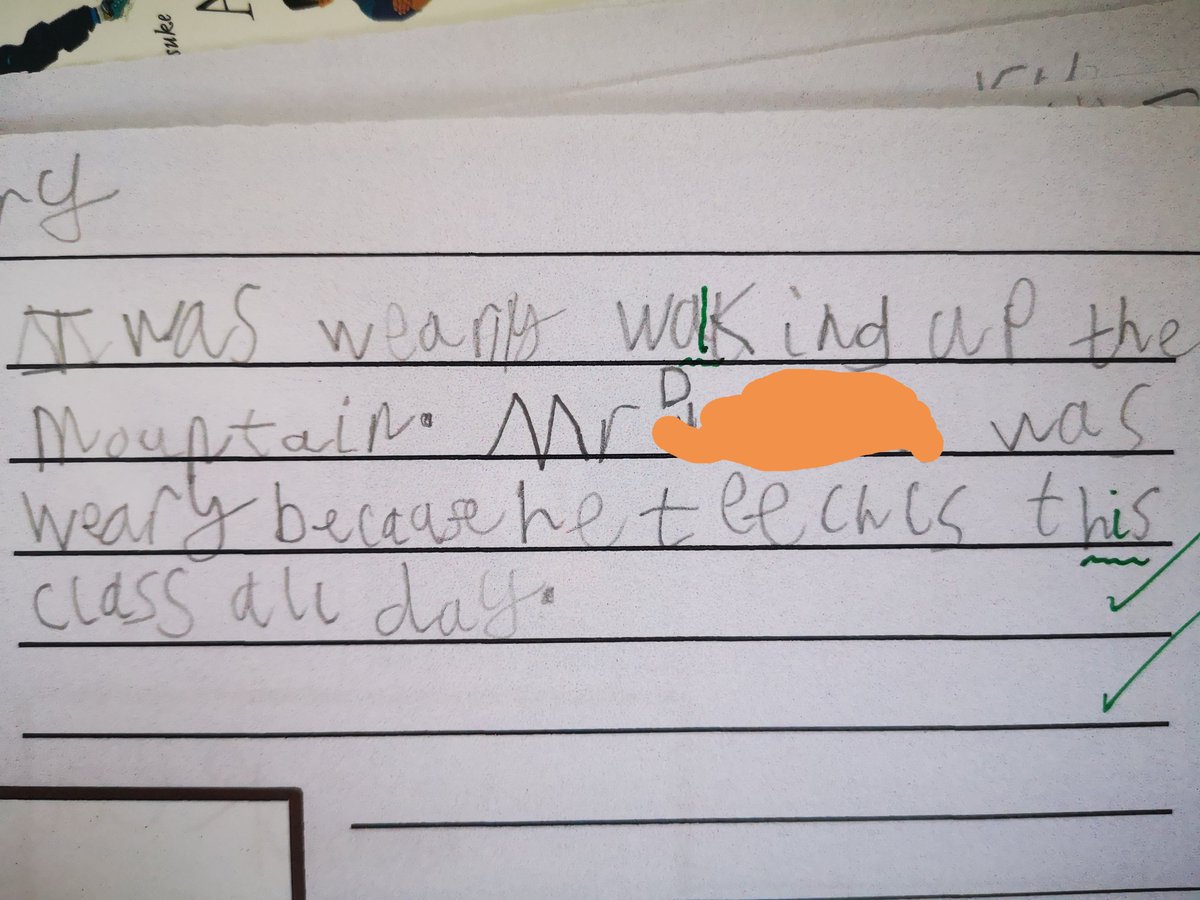 suke
A
ry
I was weary walking up the
Mountain. Mr D was
weary because he teeches this
class all day.